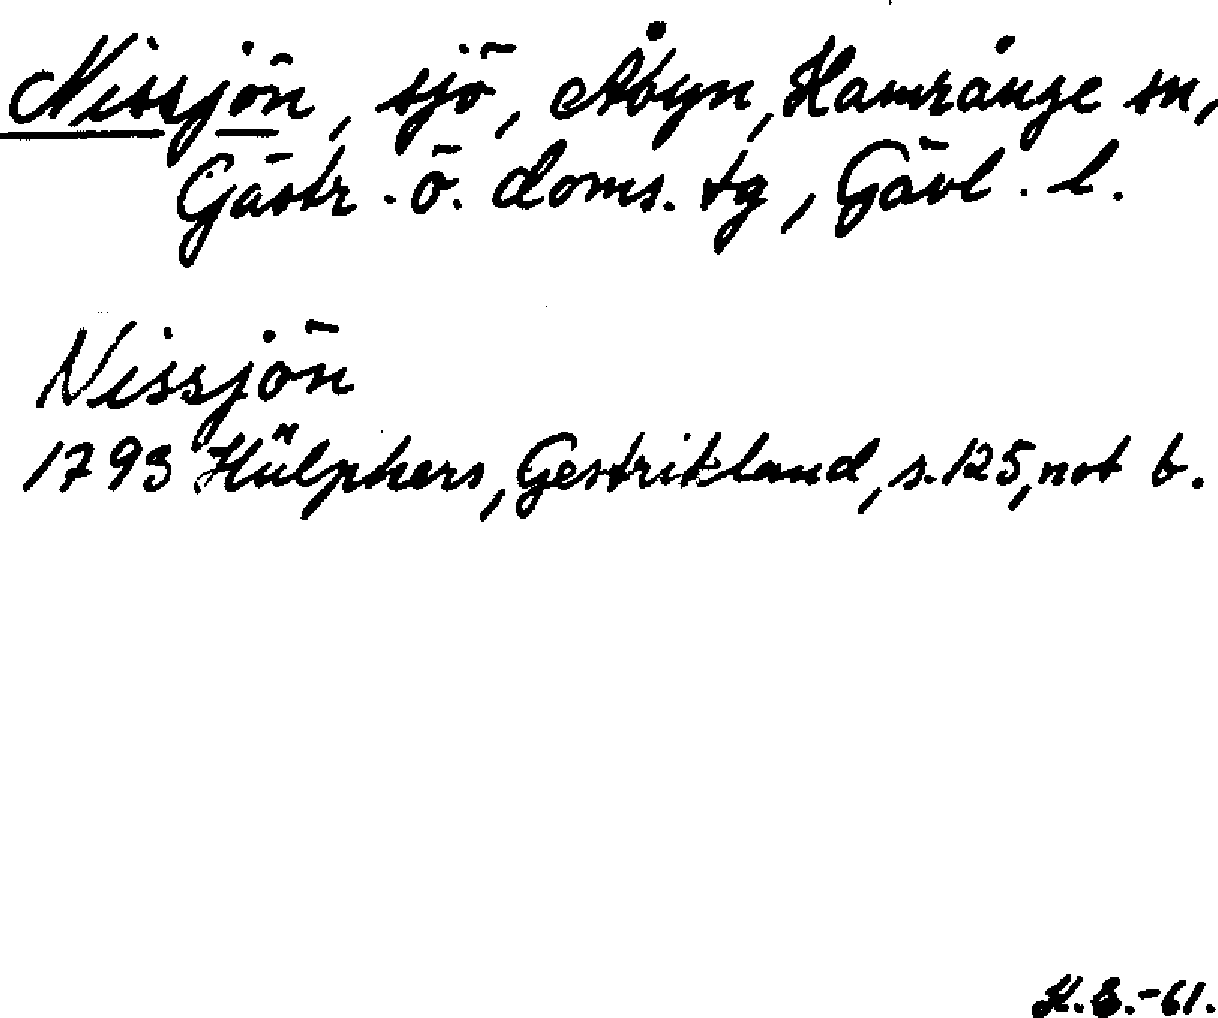 Nissjön, sjö, Åbyn, Hamrånge sn,
Gästr. ö. doms. tg, Gävl. l.
Nissjön
1793 Hülphers, Gestrikland, s. 125, not b.
K.E.-61.